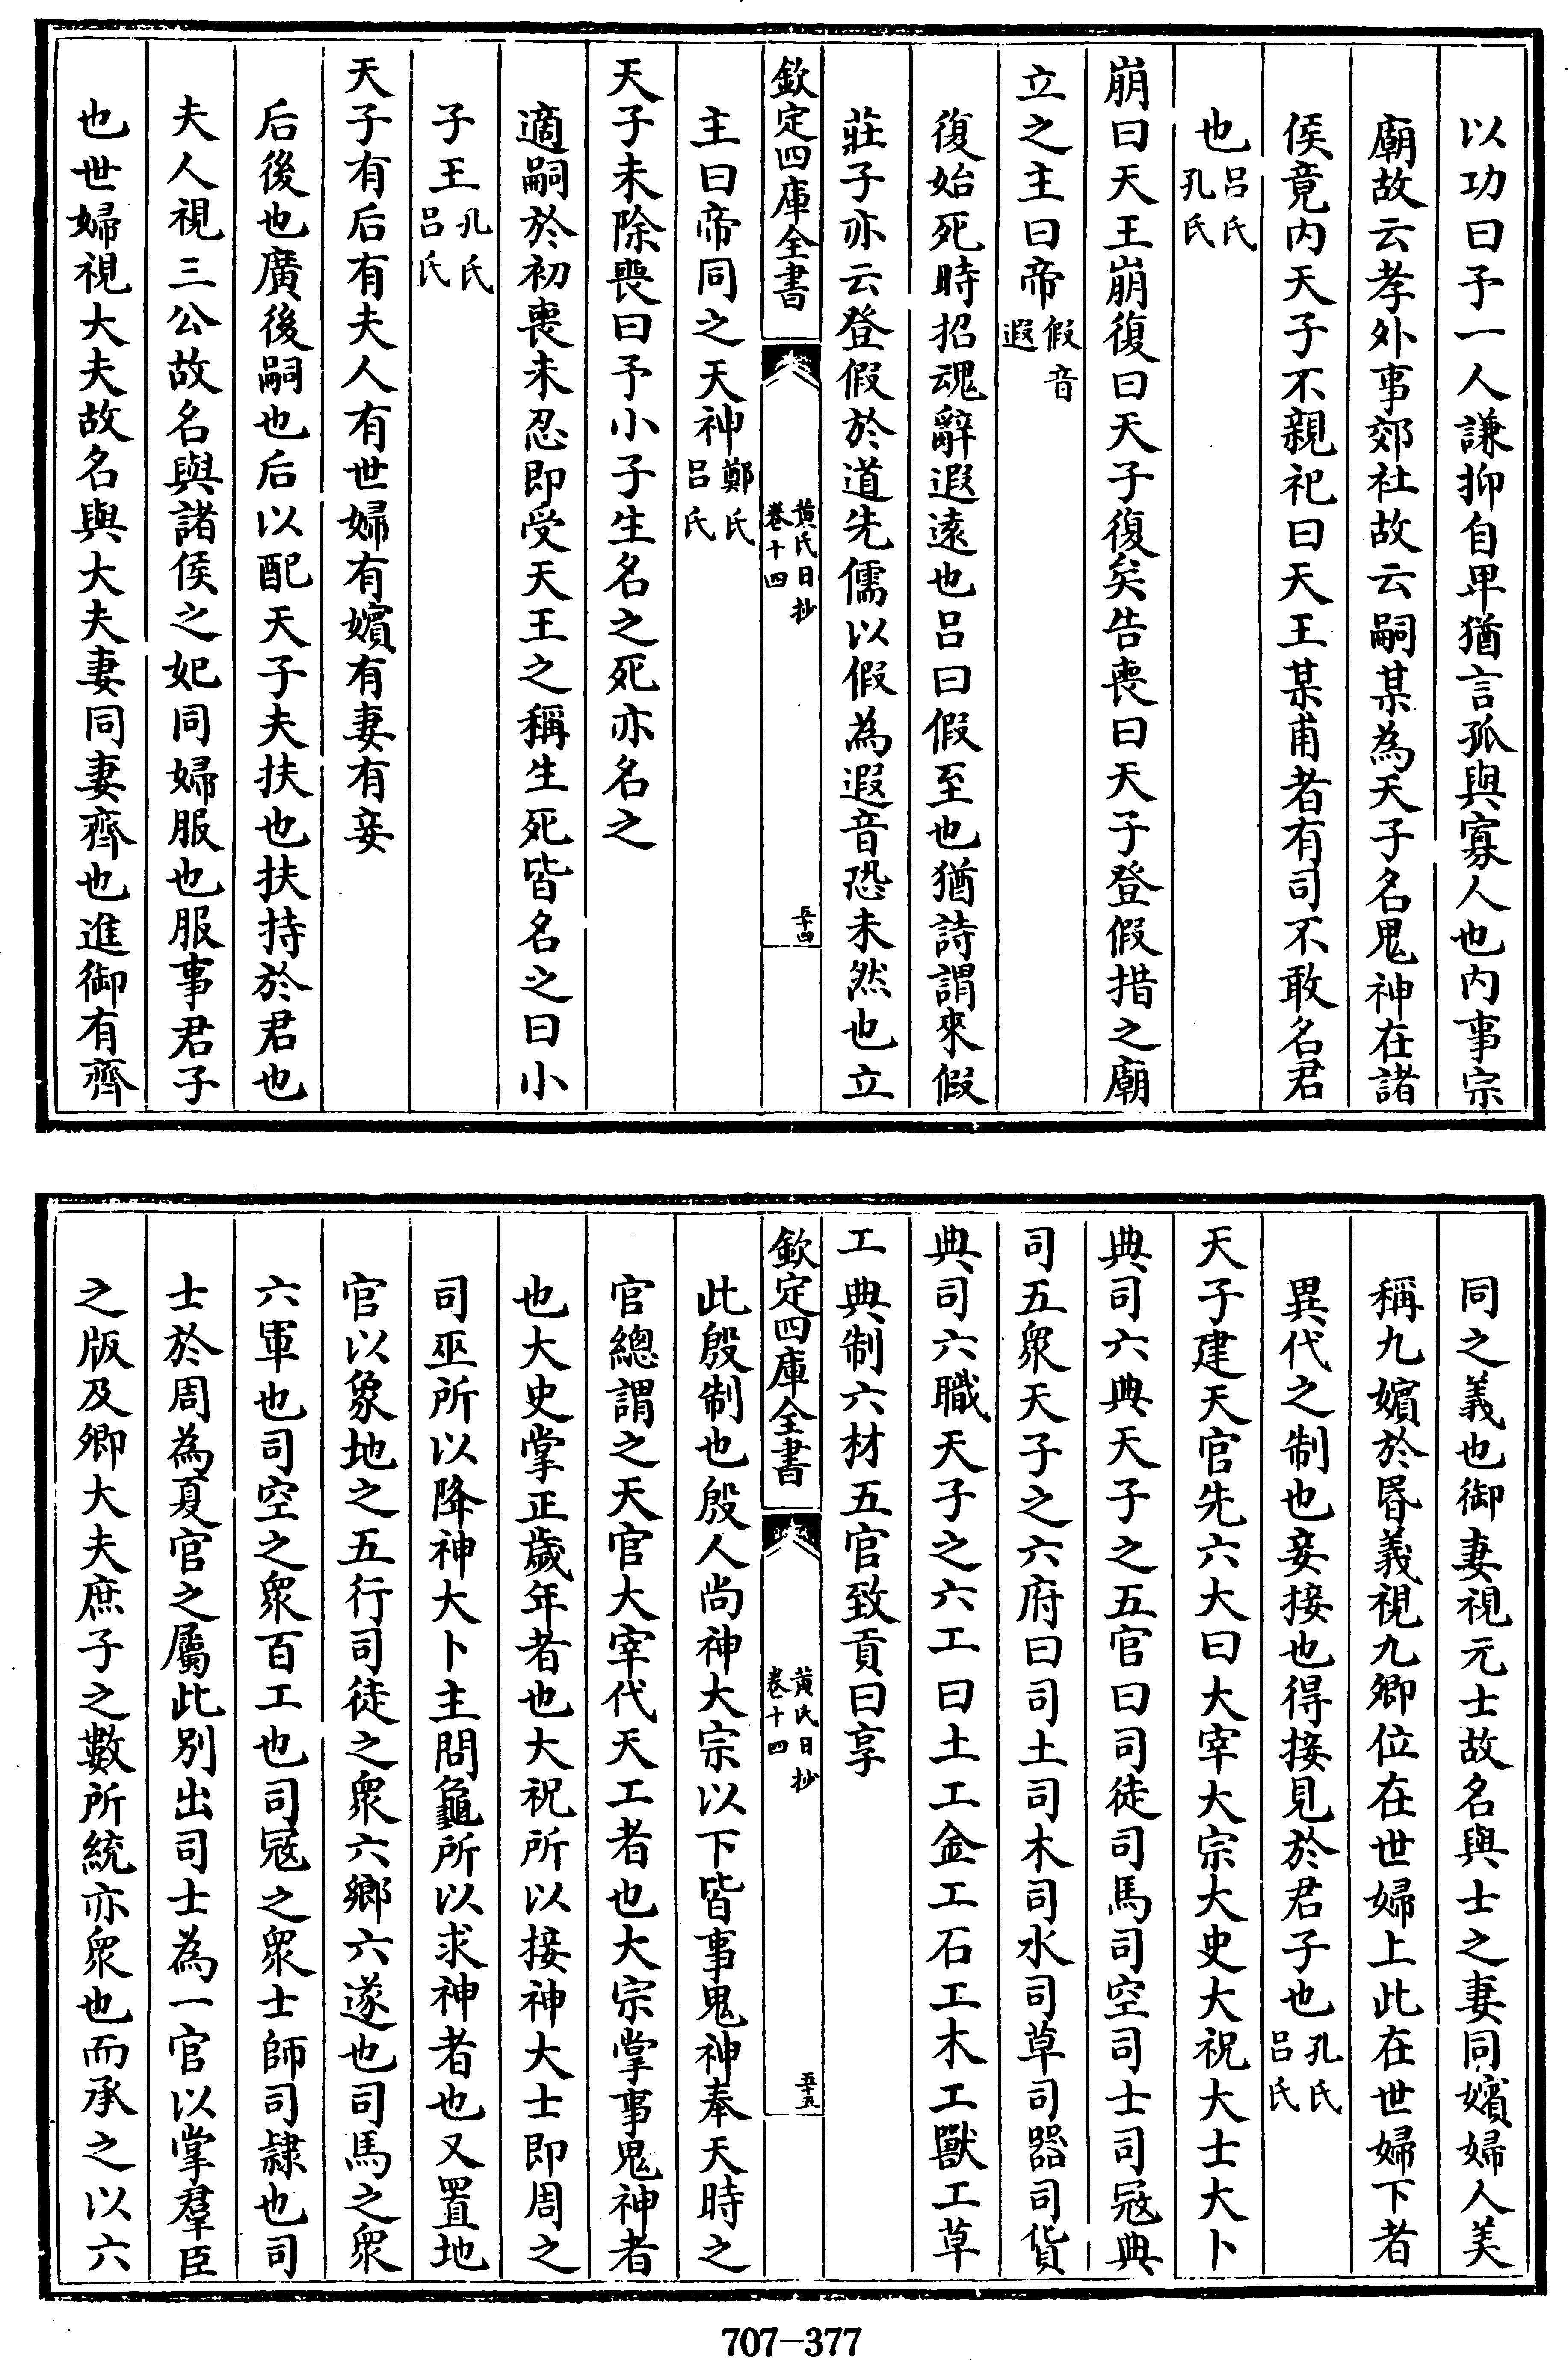 以功曰予一人謙抑自卑猶言孤與寡人也内事宗
廟故云孝外事郊社故云嗣某為天子名鬼神在諸
侯竟内天子不親祀曰天王某甫者有司不敢名君
也吕氏孔氏
崩曰天王崩復曰天子復矣告喪曰天子登假措之廟
立之主曰帝假音遐
復始死時招魂辭遐遠也吕曰假至也猶詩謂來假
莊子亦云登假於道先儒以假為遐音恐未然也立
欽定四庫全書
黄氏日抄
卷十四
五十四
主曰帝同之天神鄭氏吕氏
天子未除喪曰予小子生名之死亦名之
適嗣於初喪未忍即受天王之稱生死皆名之曰小
子王孔氏吕氏
天子有后有夫人有世婦有嬪有妻有妾
后後也廣後嗣也后以配天子夫扶也扶持於君也
夫人視三公故名與諸侯之妃同婦服也服事君子
也世婦視大夫故名與大夫妻同妻齊也進御有齊
同之義也御妻視元士故名與士之妻同嬪婦人美
稱九嬪於昬義視九卿位在世婦上此在世婦下者
異代之制也妾接也得接見於君子也孔氏吕氏
天子建天官先六大曰大宰大宗大史大祝大士大卜
典司六典天子之五官曰司徒司馬司空司士司冦典
司五衆天子之六府曰司土司木司水司草司器司貨
典司六職天子之六工曰土工金工石工木工獸工草
工典制六材五官致貢曰享
欽定四庫全書
黄氏日抄
卷十四
五十五
此殷制也殷人尚神大宗以下皆事鬼神奉天時之
官總謂之天官大宰代天工者也大宗掌事鬼神者
也大史掌正歲年者也大祝所以接神大士即周之
司巫所以降神大卜主問龜所以求神者也又置地
官以象地之五行司徒之衆六鄉六遂也司馬之衆
六軍也司空之衆百工也司冦之衆士師司隸也司
士於周為夏官之屬此别出司士為一官以掌羣臣
之版及卿大夫庶子之數所統亦衆也而承之以六
707-377